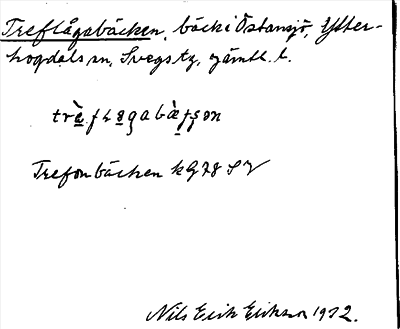 Treflågabäcken, bäck i Östansjö, Ytter-
hogdals sn, Svegs tg, jämtl. l.
trὲfLagabὰtʂən
Trefonbäcken kG78 SV
Nils Erik Erikson 1972.